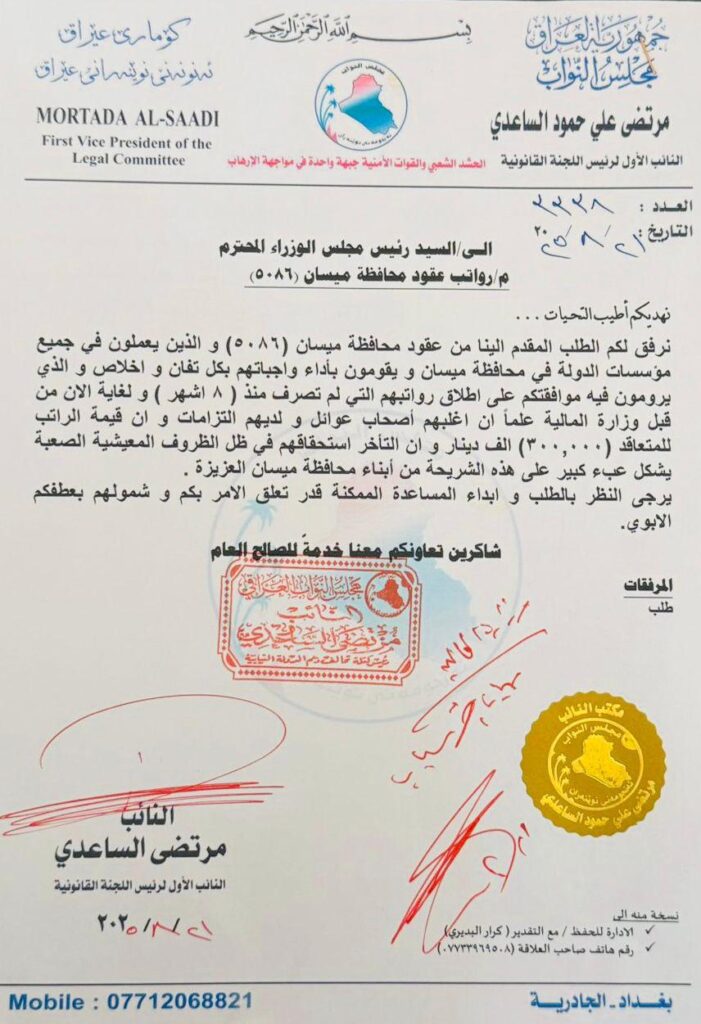 بسم الله الرحمن الرحيم
جمهورية العراق
مجلس النواب
مرتضى علي حمود الساعدي
النائب الأول لرئيس اللجنة القانونية
مجلس النواب
الحشد الشعبي والقوات الأمنية جبهة واحدة في مواجهة الإرهاب
كۆماری عێراق
ئەنوونەنی نوێنەرانی عێراق
MORTADA AL-SAADI
First Vice President of the
Legal Committee
العدد : ٣٣٣٨
التاريخ : ٢١/٨/٢٠٢٥
الـى/السيد رئيس مجلس الوزراء المحترم
م/رواتب عقود محافظة ميسان (٥٠٨٦)
نهديكم أطيب التحيات . . .
نرفق لكم الطلب المقدم الينا من عقود محافظة ميسان (٥٠٨٦) و الذين يعملون في جميع
مؤسسات الدولة في محافظة ميسان و يقومون بأداء واجباتهم بكل تفان و اخلاص و الذي
يرومون فيه موافقتكم على اطلاق رواتبهم التي لم تصرف منذ ( ٨ اشهر ) و لغاية الان من
قبل وزارة المالية علماً ان اغلبهم أصحاب عوائل و لديهم التزامات و ان قيمة الراتب
للمتعاقد (٣٠٠,٠٠٠) الف دينار و ان التأخر استحقاقهم في ظل الظروف المعيشية الصعبة
يشكل عبء كبير على هذه الشريحة من أبناء محافظة ميسان العزيزة .
يرجى النظر بالطلب و ابداء المساعدة الممكنة قدر تعلق الامر بكم و شمولهم بعطفكم
الابوي.
شاكرين تعاونكم معنا خدمةً للصالح العام
المرفقات
طلب
مجلس النواب العراقي
النائب
مرتضى الساعدي
مكتب النائب
مجلس النواب
مرتضى علي حمود الساعدي
النائب
مرتضى الساعدي
النائب الأول لرئيس اللجنة القانونية
٢١/٨/٢٠٢٥
نسخة منه الى
✓ الادارة للحفظ / مع التقدير ( كرار البديري)
✓ رقم هاتف صاحب العلاقة (٠٧٧٣٣٩٦٩٥٠٨)
بغداد ـ الجادرية
Mobile : 07712068821